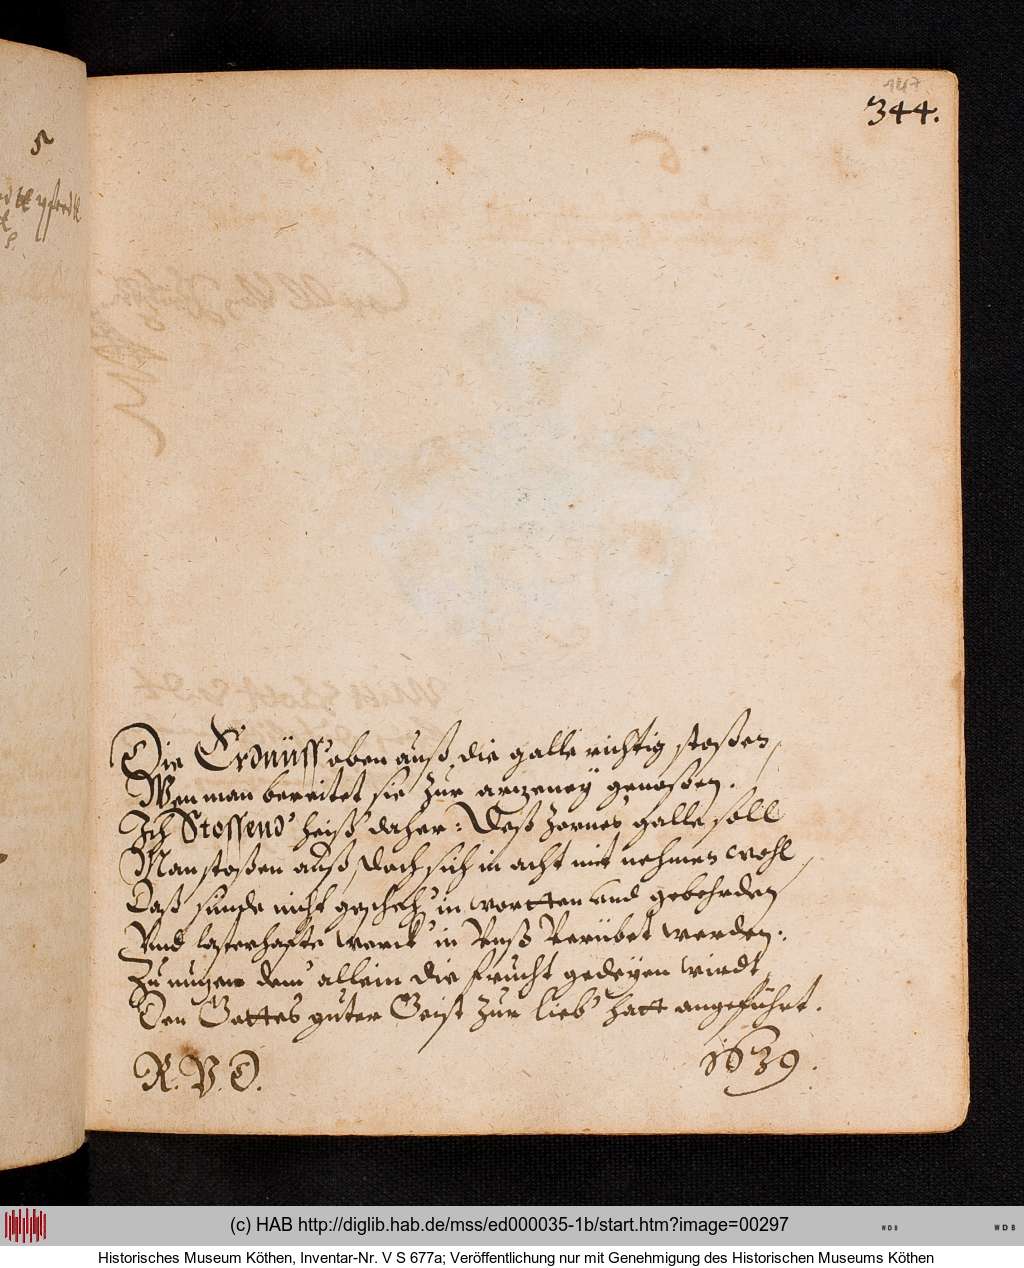 147
344.
5
Die Erdnüss' oben auß, die galle richtig stoßen,
Wen man bereitet sie zur arzeney genoßen.
Ich Stossend' heiß' daher: Deß zornes galle soll
Man stoßen auß, doch sich in acht mit nehmen wohl,
Daß sunde nicht gescheh' in wortten und gebehrden
Und lasterhafte werck' in Unß verübet werden.
Zu nuzen dem' allein die frucht gedeyen wirdt,
Den Gottes guter Geist zur lieb' hatt angeführt.
R. V. D. 1639.
(c) HAB http://diglib.hab.de/mss/ed000035-1b/start.htm?image=00297
WDB
WDB
Historisches Museum Köthen, Inventar-Nr. V S 677a; Veröffentlichung nur mit Genehmigung des Historischen Museums Köthen